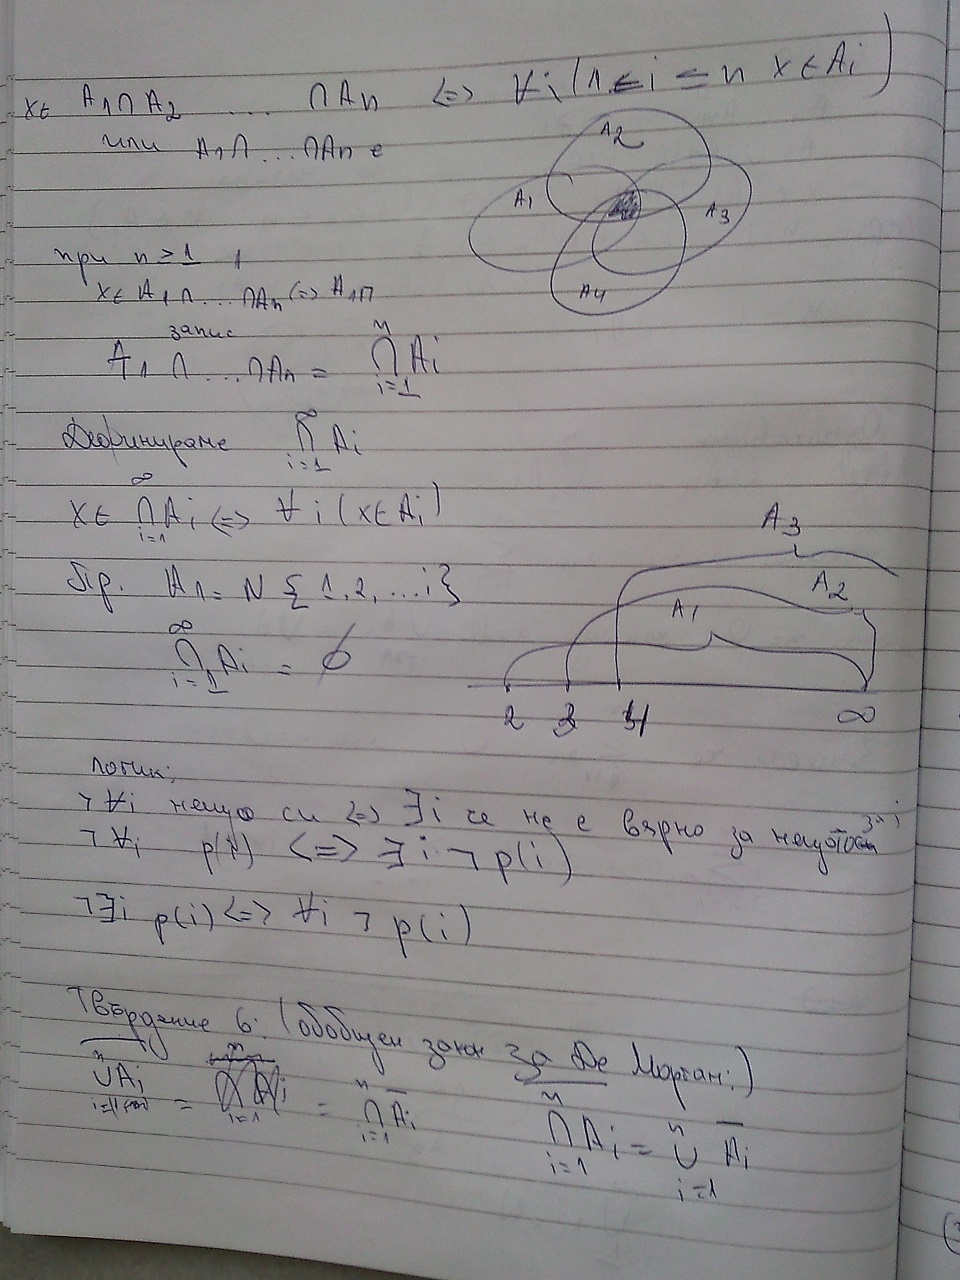 x∈ A₁∩A₂ ... ∩Aₙ <=> ∀i(1≤i≤n x∈Ai)
или A₁∩...∩Aₙ e
A₂
A₁
A₃
A₄
при n≥1,
x∈A₁∩...∩Aₙ<=> A₁∩
запис
A₁∩...∩Aₙ = ⋂ⁿᵢ₌₁ Ai
Дефинираме ⋂^∞ᵢ₌₁ Ai
x∈ ⋂^∞ᵢ₌₁ Ai <=> ∀i(x∈Ai)
Пр. A₁= N {1,2,...i}
⋂^∞ᵢ₌₁ Ai = ∅
A₃
A₂
A₁
2 3 4 ∞
логик:
¬∀i нещо си <=> ∃i че не е вярно за нещото за i
¬∀i p(i) <=> ∃i ¬p(i)
¬∃i p(i) <=> ∀i ¬p(i)
Твърдение 6: (обобщен закон за Де Морган:)
‾⋃ⁿᵢ₌₁ Ai‾ = = ⋂ⁿᵢ₌₁ A̅i
‾⋂ⁿᵢ₌₁ Ai‾ = ⋃ⁿᵢ₌₁ A̅i